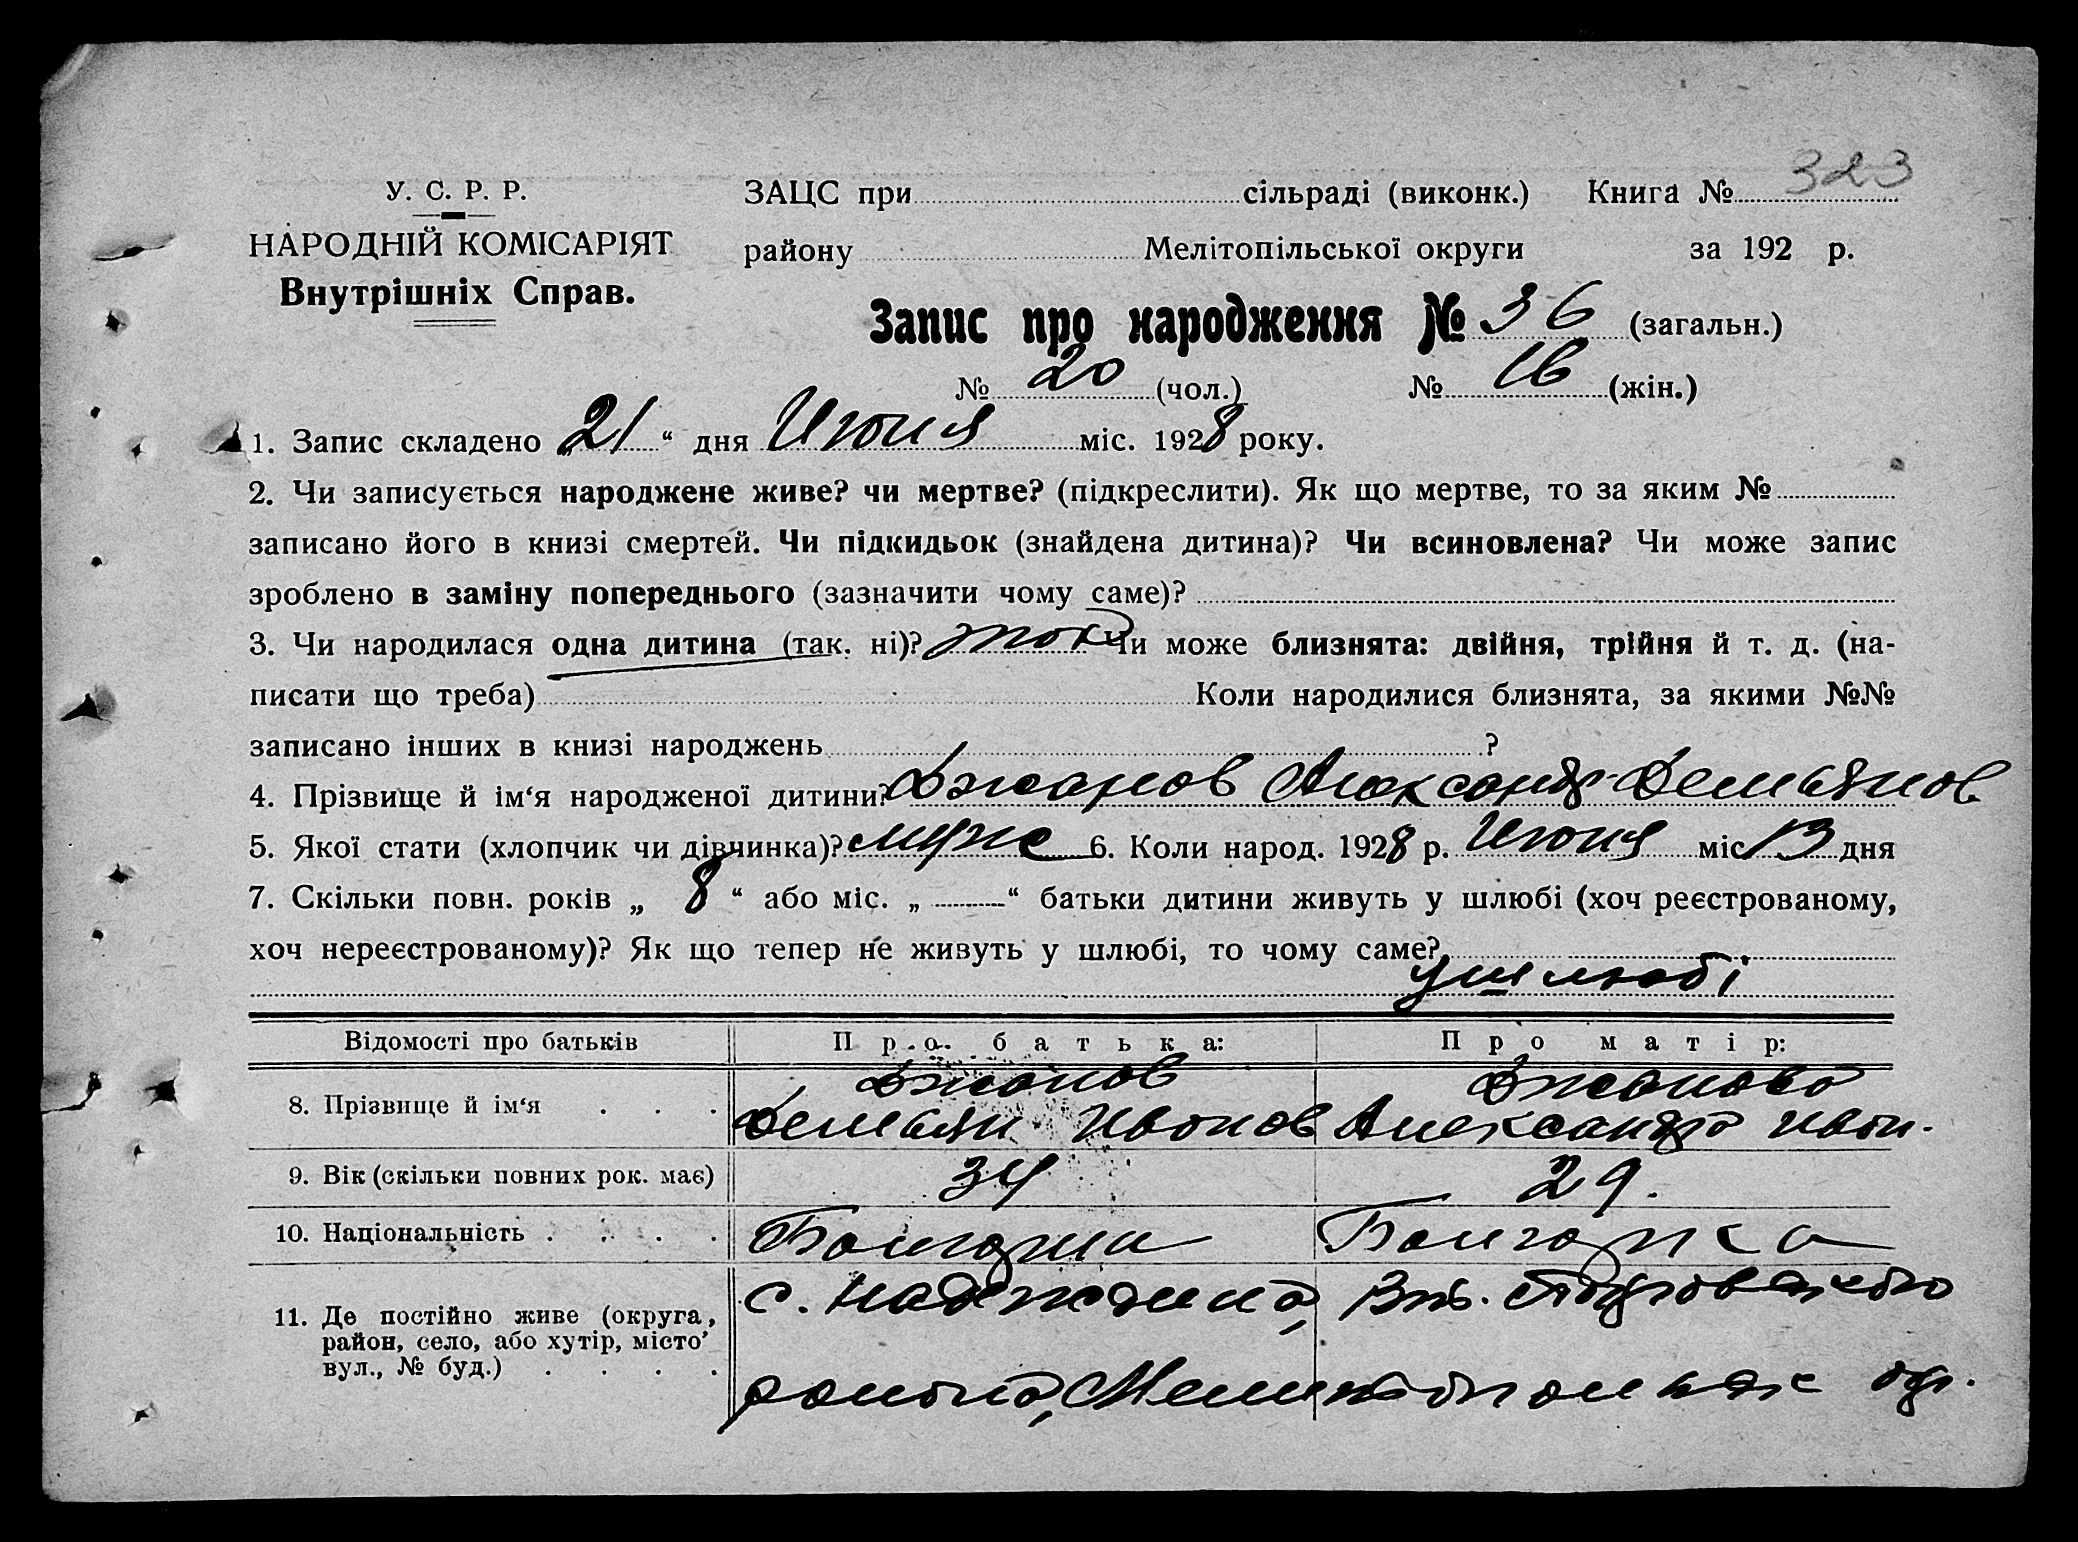 323
У. С. Р. Р.
НАРОДНІЙ КОМІСАРІЯТ
Внутрішніх Справ.
ЗАЦС при сільраді (виконк.) Книга №
району Мелітопільської округи за 192 р.
Запис про народження № 36 (загальн.)
№ 20 (чол.) № 16 (жін.)
1. Запис складено „21“ дня Июня міс. 1928 року.
2. Чи записується народжене живе? чи мертве? (підкреслити). Як що мертве, то за яким №
записано його в книзі смертей. Чи підкидьок (знайдена дитина)? Чи всиновлена? Чи може запис
зроблено в заміну попереднього (зазначити чому саме)?
3. Чи народилася одна дитина (так. ні)? так Чи може близнята: двійня, трійня й т. д. (на-
писати що треба) Коли народилися близнята, за якими №№
записано інших в книзі народжень ?
4. Прізвище й ім‘я народженої дитини? Джанов Александр Демьянов
5. Якої стати (хлопчик чи дівчинка)? муж 6. Коли народ. 1928 р. Июня міс 13 дня
7. Скільки повн. років „ 8 “ або міс. „ “ батьки дитини живуть у шлюбі (хоч реєстрованому,
хоч нереєстрованому)? Як що тепер не живуть у шлюбі, то чому саме?
у шлюбі
Відомості про батьків Про батька: Про матір:
8. Прізвище й ім‘я . . . Джанов Джанова
Демьян Иванов Александра Иван.
9. Вік (скільки повних рок. має) 34 29.
10. Національність . . . . Болгарин Болгарка
11. Де постійно живе (округа, район, село, або хутір, місто’ вул., № буд.) . . . .
с. Надеждина,
района, Мелитопольск окр.